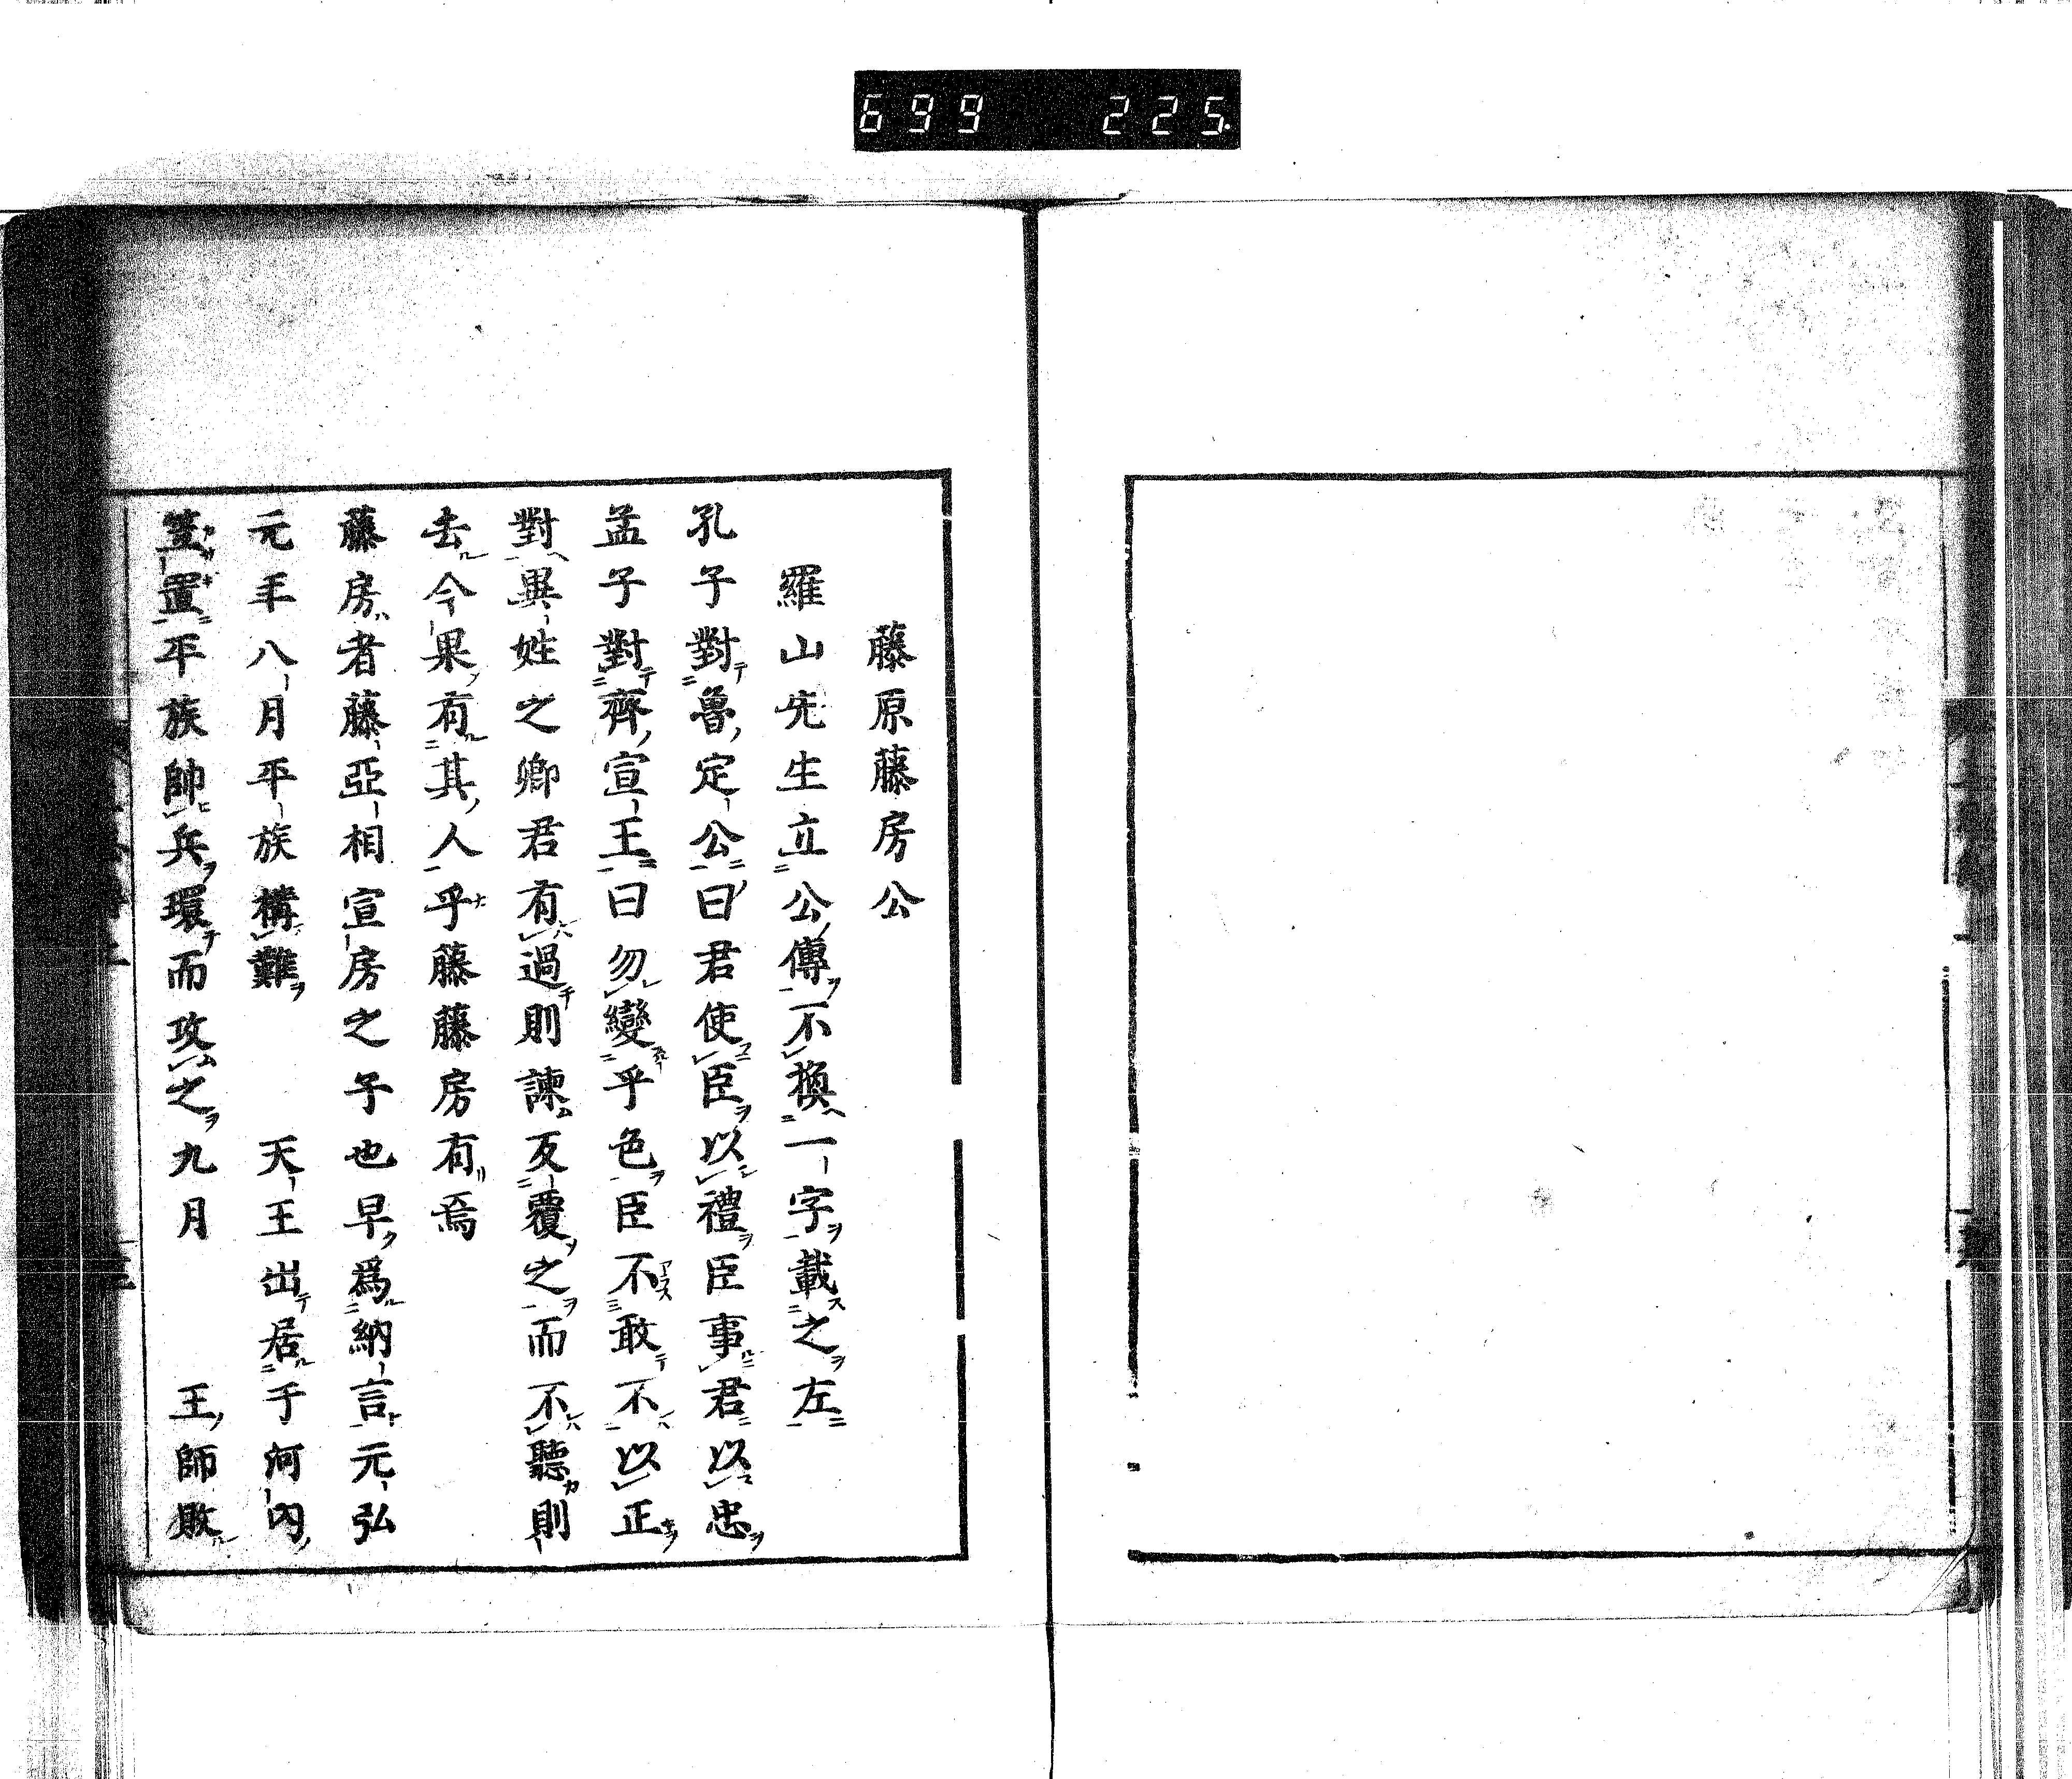 699 225
藤原藤房公
羅山先生立公傳不換一字載之左
孔子對魯定公曰君使臣以禮臣事君以忠
孟子對齊宣王曰勿變乎色臣不敢不以正
對異姓之卿君有過則諫反覆之而不聽則
去今果有其人乎藤藤房有焉
藤房者藤亞相宣房之子也早爲納言元弘
元年八月平族構難 天王出居于河內
笠置平族帥兵環而攻之九月 王師敗